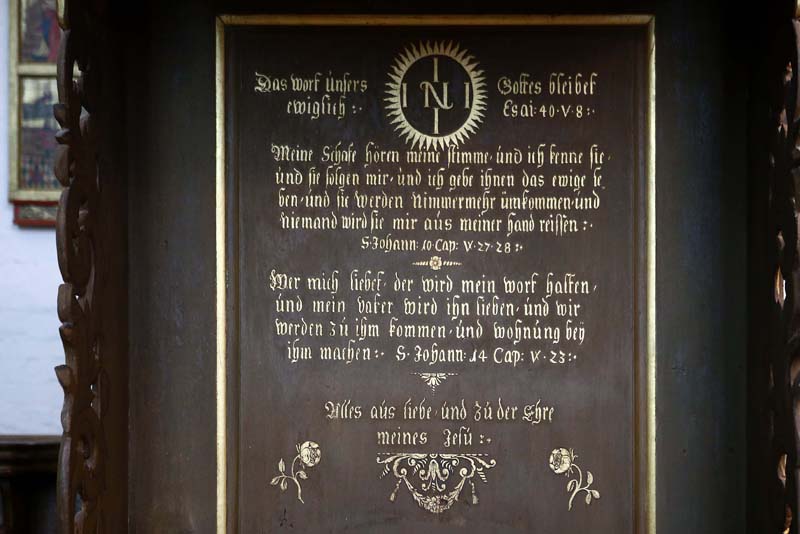 Das wort únsers Gottes bleibet
ewiglich :· Esai: 40·V·8:·
I
I N I
I
Meine Schafe hören meine stimme· únd ich kenne sie·
únd sie folgen mir· únd ich gebe ihnen das ewige le
ben· únd sie werden nimmermehr úmkommen· únd
niemand wird sie mir aús meiner hand reissen :·
S·Johann: 10 Cap: V·27·28:·
Wer mich liebet· der wird mein wort halten·
únd mein vater wird ihn lieben· únd wir
werden zú ihm kommen· únd wohnúng beÿ
ihm machen:· S·Johann: 14 Cap: V·23:·
Alles aús liebe· únd zú der Ehre
meines Jesú :·